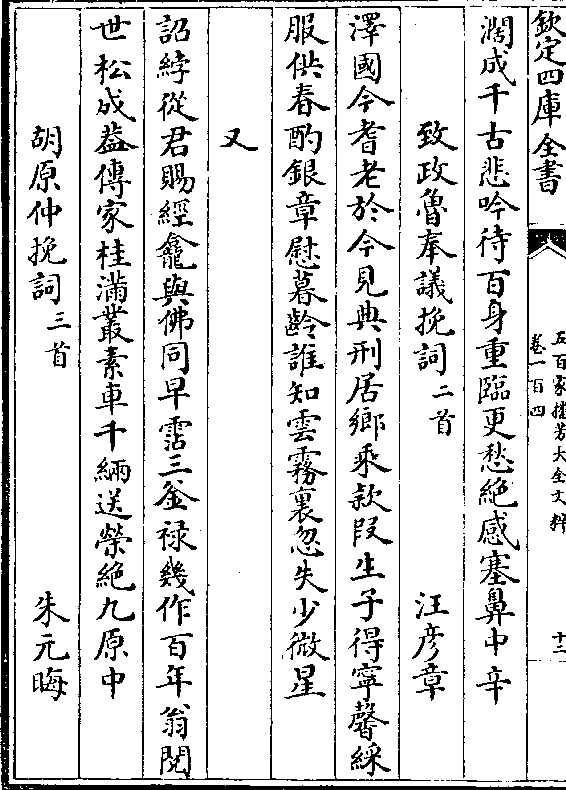 欽定四庫全書
五百家播芳大全文粹
卷一百四
十二
濶成千古悲吟待百身重臨更愁絶感塞鼻中辛
致政魯奉議挽詞二首 汪彦章
澤國今耆老於今見典刑居鄉乘款段生子得寧馨綵
服供春酌銀章慰暮齡誰知雲霧裏忽失少微星
又
詔綍從君賜經龕與佛同早霑三釜禄幾作百年翁閲
世松成葢傳家桂滿叢素車千緉送榮絶九原中
胡原仲挽詞三首 朱元晦